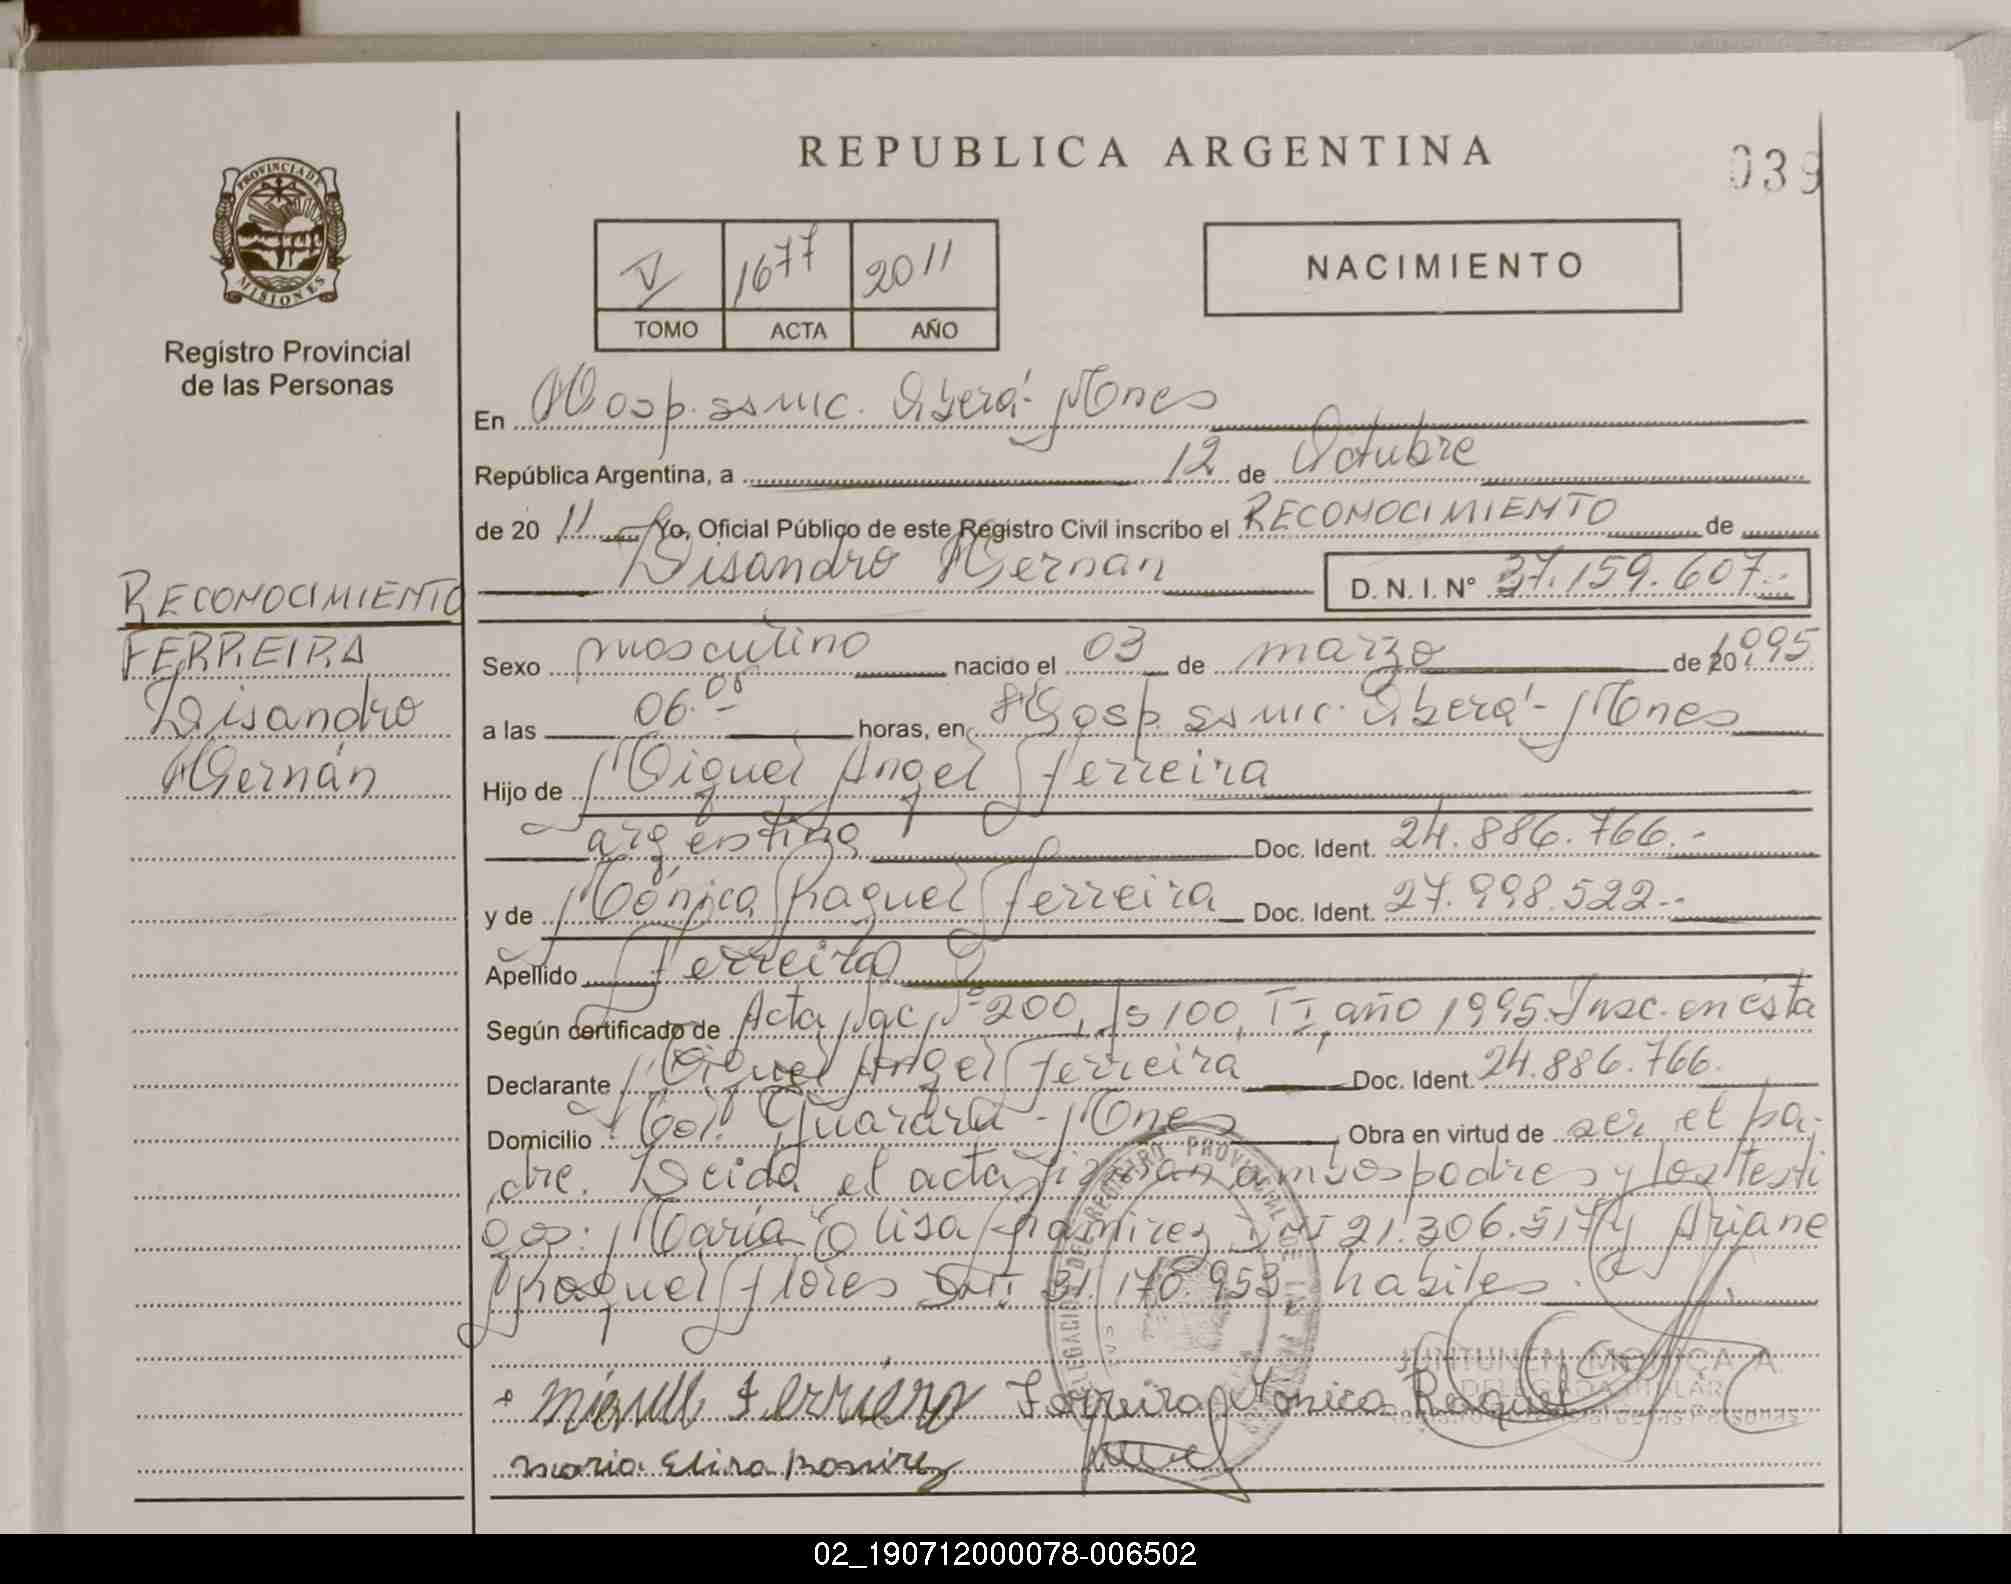 REPUBLICA ARGENTINA
039
PROVINCIA DE
MISIONES
Registro Provincial
de las Personas
V 1677 2011
TOMO ACTA AÑO
NACIMIENTO
En Hosp. ssmic. Oberá - Mnes
República Argentina, a 12 de Octubre
de 20 11 Yo, Oficial Público de este Registro Civil inscribo el RECONOCIMIENTO de
Lisandro Hernan D. N. I. N° 37.159.607.-
RECONOCIMIENTO
FERREIRA
Lisandro
Hernán
Sexo masculino nacido el 03 de marzo de 20 1995
a las 06.00 horas, en Hosp. ssmic. Oberá - Mnes
Hijo de Miguel Angel Ferreira
argentino Doc. Ident. 24.886.766.-
y de Mónica Raquel Ferreira Doc. Ident. 27.998.522.-
Apellido Ferreira
Según certificado de Acta Nac. N° 200, Fs 100, T I, año 1995. Insc. en ésta
Declarante Miguel Angel Ferreira Doc. Ident. 24.886.766.
Domicilio Col. Guaraní - Mnes Obra en virtud de ser el pa-
dre. Leida el acta firman ambos padres y los testi
gos: María Elisa Ramirez DNI 21.306.517 y Ariane
Raquel Flores DNI 31.170.953, habiles.
DELEGACION DEL REGISTRO PROVINCIAL DE LAS
JUNTUNEN MONICA A.
DELEGADA TITULAR
Registro Provincial de las Personas
Miguel Ferreira Ferreira Monica Raquel
Maria Elisa Ramirez
02_190712000078-006502